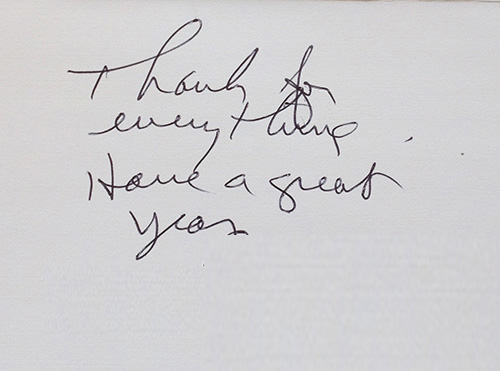 Thank for
everything.
Have a great
year